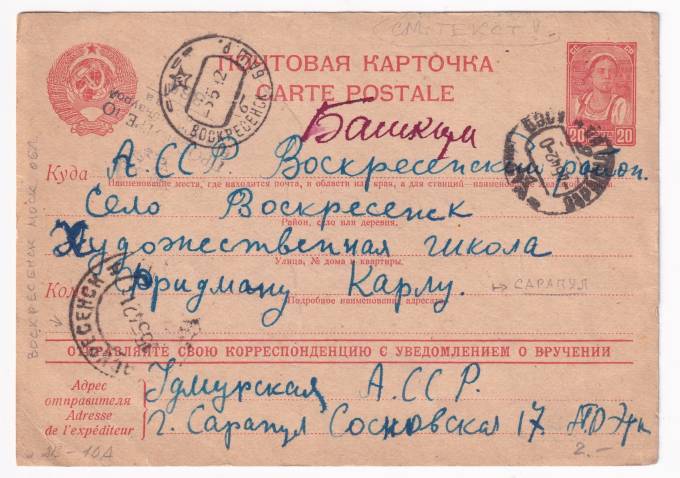 (СМ. ТЕКСТ!)
ПОЧТОВАЯ КАРТОЧКА
CARTE POSTALE
20 20
ВОСКРЕСЕНСК
Башкир
Куда А.ССР. Воскресенский район.
Наименование места, где находится почта, и области или края, а для станций—наименование железной дороги.
Село Воскресенск
Район, село или деревня.
Художественная школа
Улица, № дома и квартиры.
Кому Фридману Карлу.
Подробное наименование адресата
→ САРАПУЛ
ВОСКРЕСЕНСК МОСК. ОБЛ.
ОТПРАВЛЯЙТЕ СВОЮ КОРРЕСПОНДЕНЦИЮ С УВЕДОМЛЕНИЕМ О ВРУЧЕНИИ
Адрес отправителя
Adresse de l'expéditeur
Удмурская А.ССР.
г. Сарапул Сосновская 17.
2.–